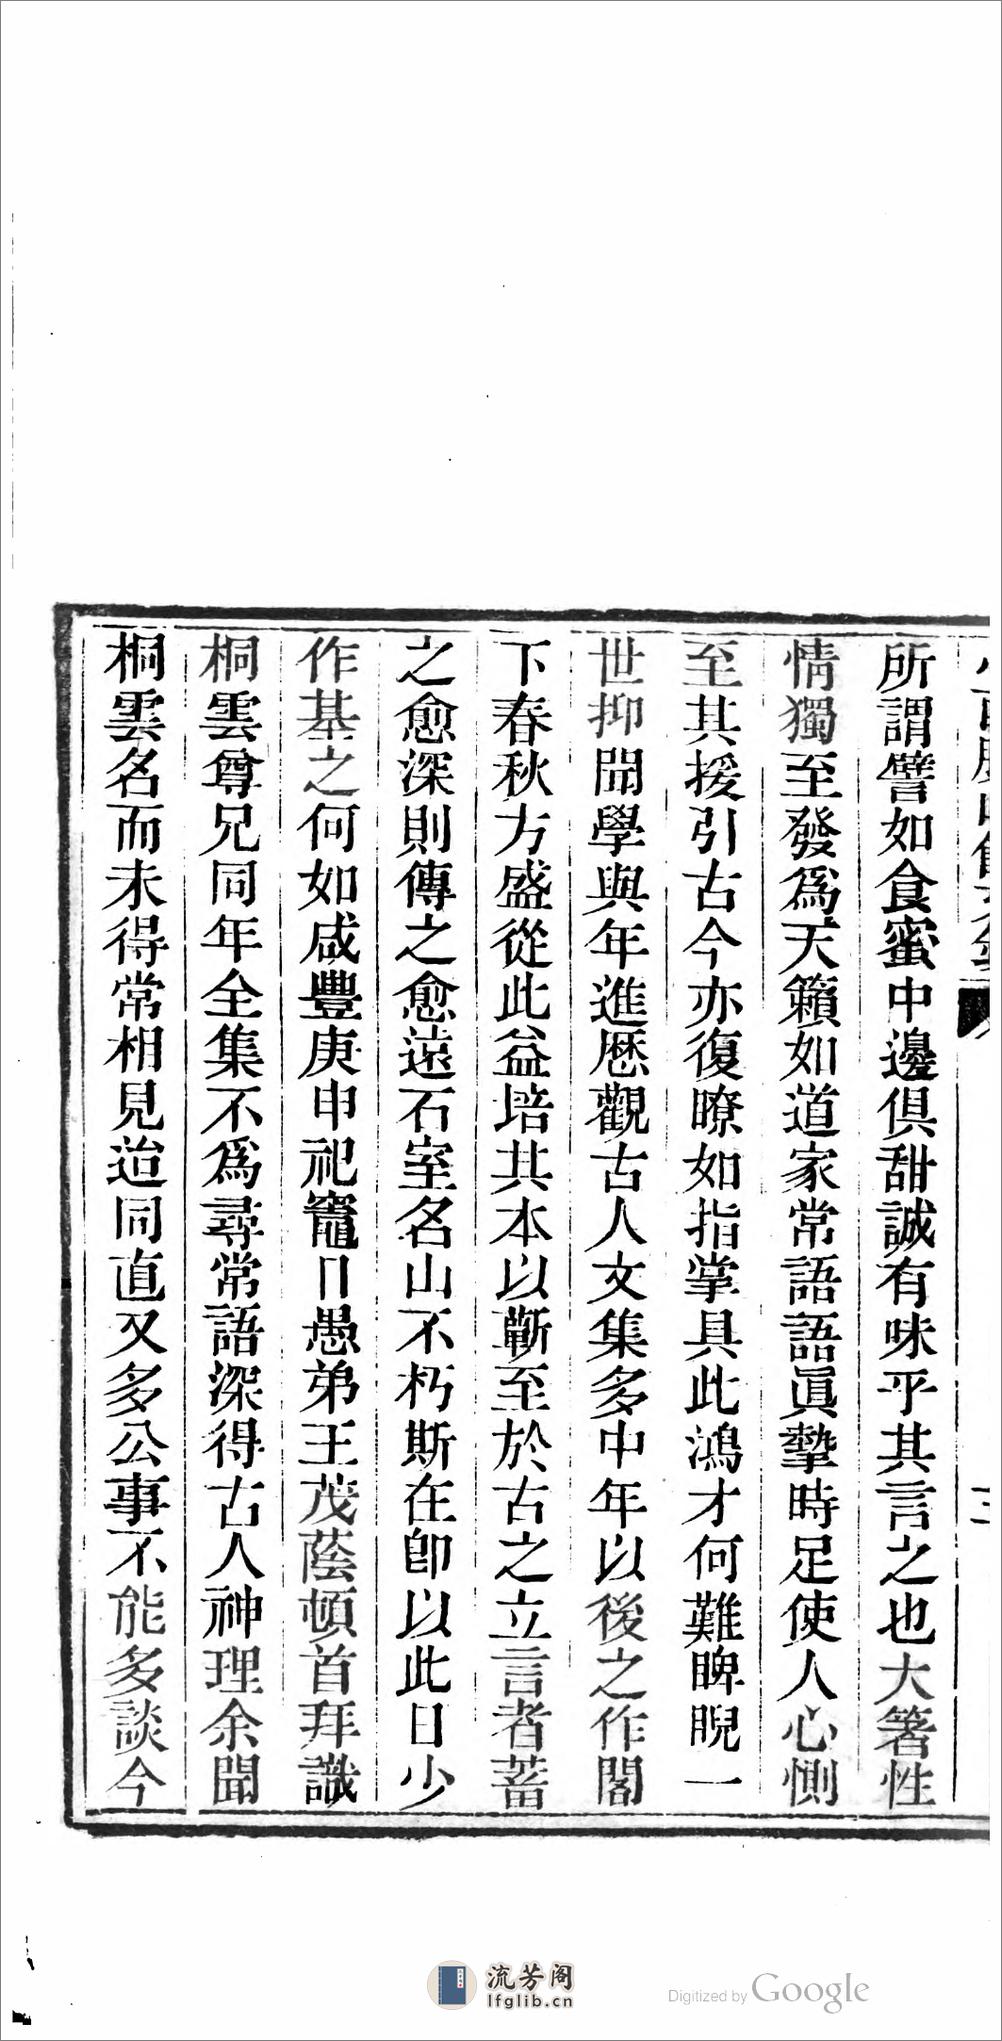 所謂譬如食蜜中邊俱甜誠有味乎其言之也大箸性
情獨至發爲天籟如道家常語語眞摯時足使人心惻
至其援引古今亦復瞭如指掌具此鴻才何難睥睨一
世抑聞學與年進歷觀古人文集多中年以後之作閣
下春秋方盛從此益培其本以蘄至於古之立言者蓄
之愈深則傳之愈遠石室名山不朽斯在卽以此日少
作基之何如咸豐庚申祀竈日愚弟王茂蔭頓首拜識
桐雲尊兄同年全集不爲尋常語深得古人神理余聞
桐雲名而未得常相見迨同直又多公事不能多談今
流芳阁
lfglib.cn
Digitized by Google